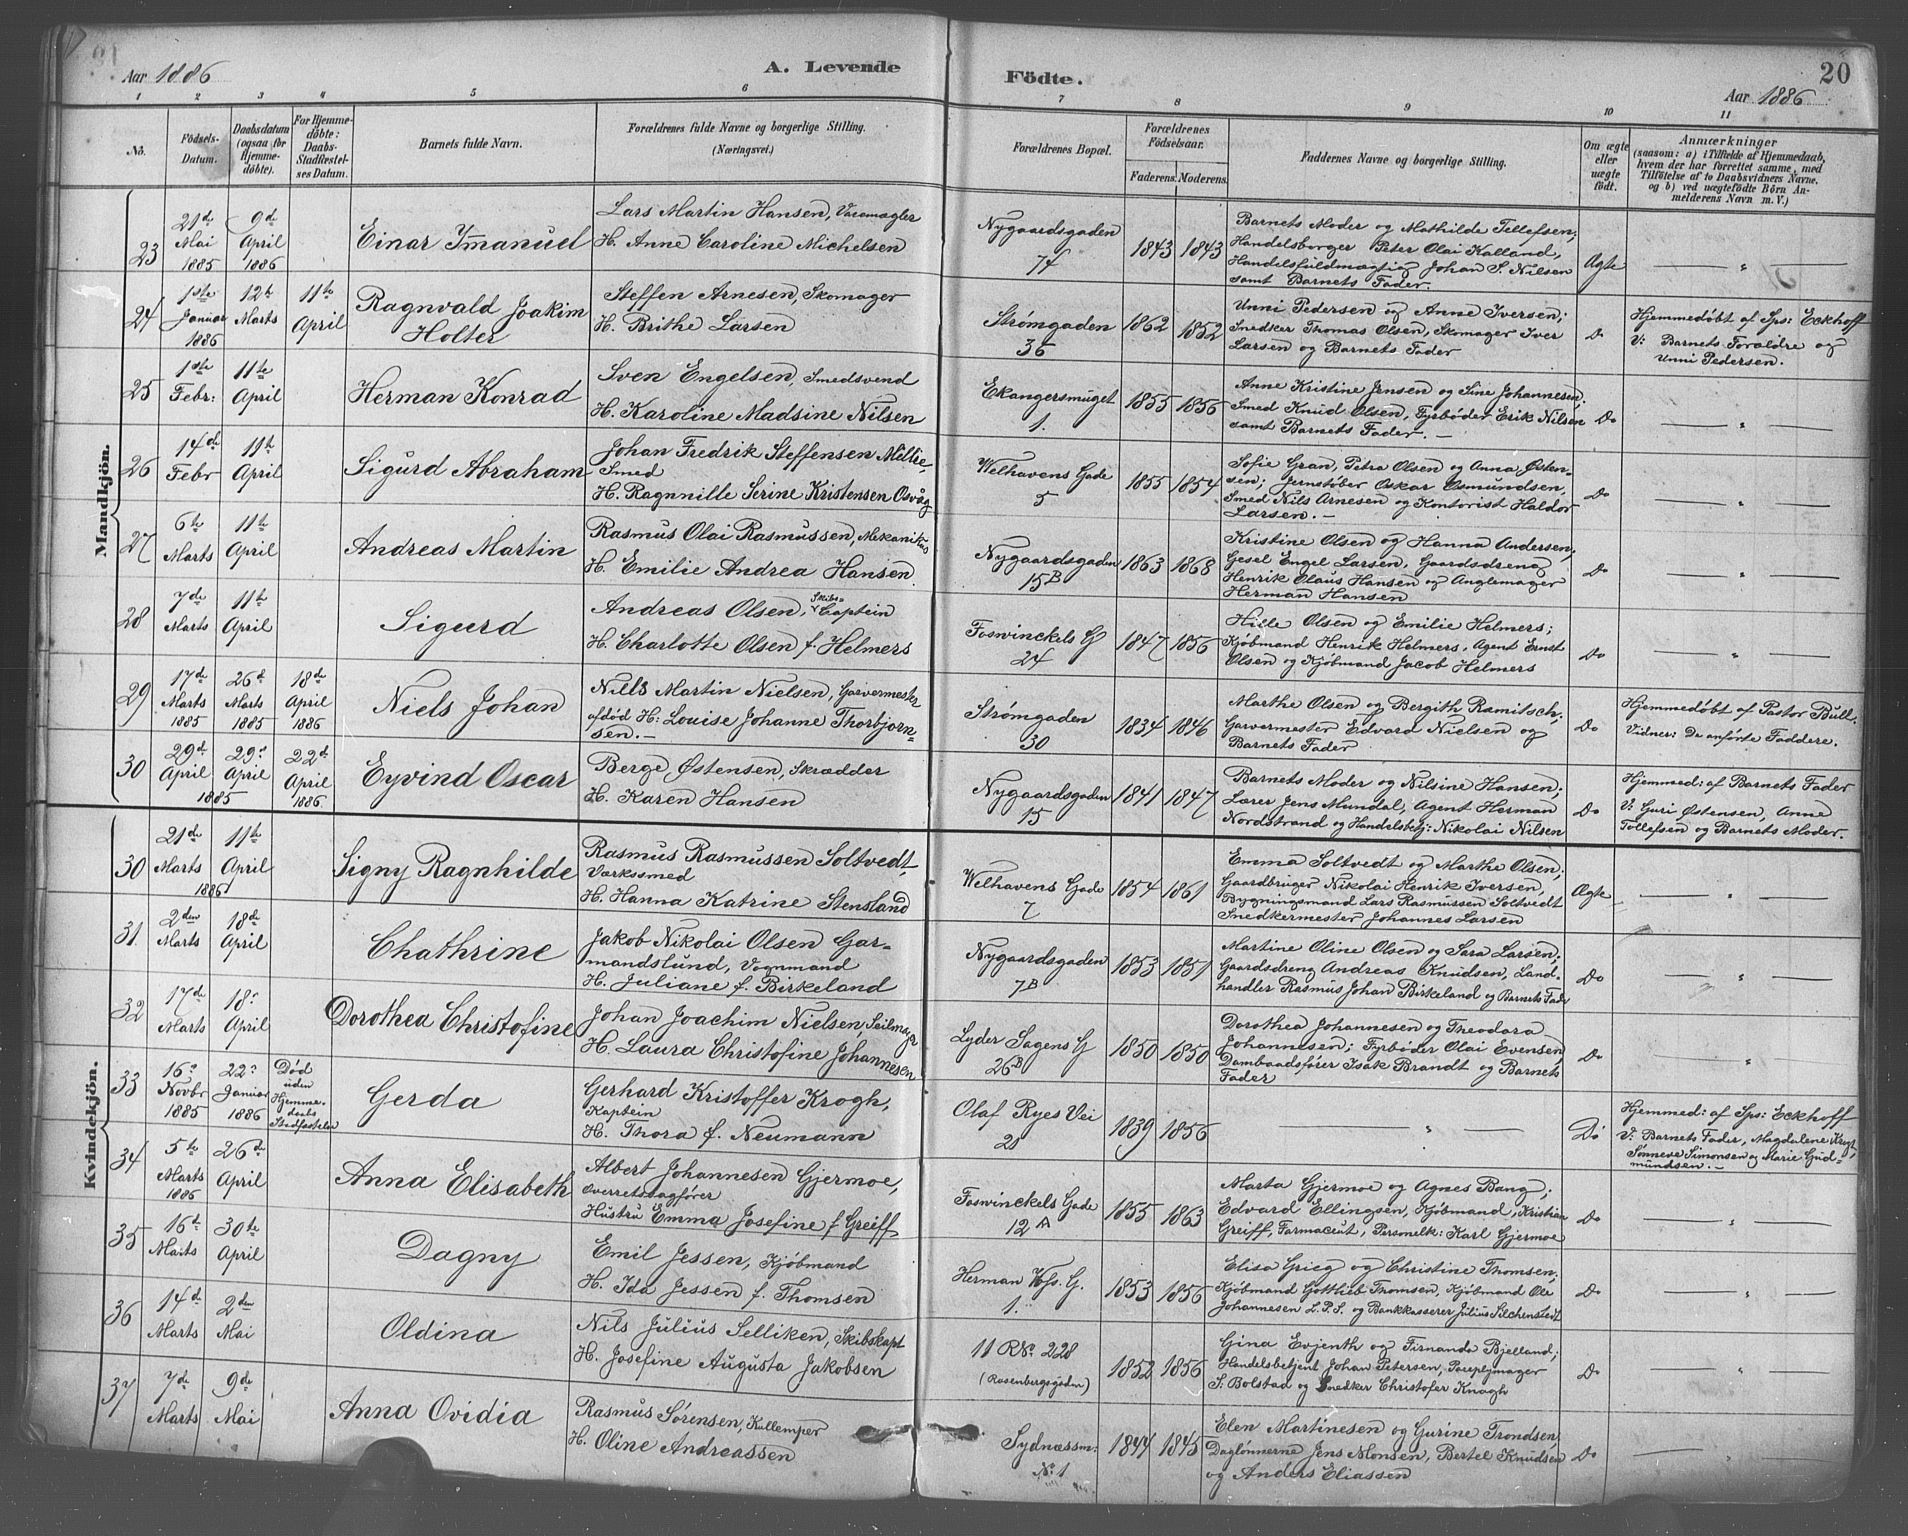 Aar 1886
A. Levende
Födte.
Aar 1886
20
1 2 3 4 5 6 7 8 9 10 11
No.
Födsels-Datum.
Daabsdatum (ogsaa for Hjemmedöbte).
For Hjemmedöbte: Daabs-Stadfæstelses Datum.
Barnets fulde Navn.
Forældrenes fulde Navne og borgerlige Stilling.
(Næringsvei.)
Forældrenes Bopæl.
Forældrenes Födselsaar.
Faderens. Moderens.
Faddernes Navne og borgerlige Stilling.
Om ægte eller uægte født.
Anmærkninger
(saasom: a) i Tilfælde af Hjemmedaab, hvem der har forrettet samme, med Tilföielse af to Daabsvidners Navne, og b) ved uægtefödte Börn Anmelderens Navn m. V.)
Mandkjön.
23
21de Mai 1885
9de April 1886
Einar Imanuel
Lars Martin Hansen, Varamægler
H. Anne Caroline Michelsen
Nygaardsgaden
74
1843 1843
Barnets Moder og Mathilde Tellefsen;
Handelsborger Peter Olai Kalland,
Handelsfuldmægtig Johan S. Nilsen
samt Barnets Fader.
Ægte
24
1ste Januar 1886
12te Marts
11te April
Ragnvald Joakim
Holter
Steffen Arnesen, Skomager
H. Brithe Larsen
Strømgaden
35
1862 1852
Unni Pedersen og Anne Iversen;
Snedker Thomas Olsen, Skomager Iver
Larsen og Barnets Fader
Do
Hjemmedøbt af Sps: Eckhoff
V: Barnets Forældre og
Unni Pedersen.
25
1ste Febr:
11te April
Herman Konrad
Sven Engelsen, Smedsvend
H. Karoline Madsine Nilsen
Ekangersmuget
1.
1855 1856
Anne Kristine Jensen og Sine Johannesen;
Smed Knud Olsen, Fyrbøder Erik Nilsen
samt Barnets Fader.—
Do
26
14de Febr
11te April
Sigurd Abraham
Johan Fredrik Steffensen Miltie,
Smed
H. Ragnnille Serine Kristensen Osvåg
Welhavens Gade
5
1855 1854
Sofie Gran, Petra Olsen og Anna Østen-
sen; Jernstøber Oskar Osmundsen,
Smed Nils Arnesen og Kontorist Haldor
Larsen.—
Do
27
6te Marts
11te April
Andreas Martin
Rasmus Olai Rasmussen, Mekanikus
H. Emilie Andrea Hansen
Nygaardsgaden
15B
1863 1868
Kristine Olsen og Hanna Andersen;
Gesel Engel Larsen, Gaardsdreng
Henrik Olaus Hansen og Anglemager
Herman Hansen
Do
28
7de Marts
11te April
Sigurd
Andreas Olsen, Skibs-Captein
H. Charlotte Olsen f. Helmers
Foswinckels G
24
1847 1856
Hille Olsen og Emilie Helmers;
Kjøbmand Henrik Helmers, Agent Ernst
Olsen og Kjøbmand Jacob Helmers
Do
29
17de Marts 1885
26de Marts 1885
18de April 1886
Niels Johan
Nills Martin Nielsen, Garvermester
afdød H: Louise Johanne Thorbjørn-
sen.—
Strømgaden
30
1834 1846
Marthe Olsen og Bergith Ramitsch;
Garvermester Edvard Nielsen og
Barnets Fader
Do
Hjemmedøbt af Pastor Bull.
Vidner: De anførte Faddere.
30
29de April
29de April
1885
22de April 1886
Eyvind Oscar
Berge Østensen, Skrædder
H. Karen Hansen
Nygaardsgaden
15
1841 1847
Barnets Moder og Nilsine Hansen;
Lærer Jens Mundal, Agent Herman
Nordstrand og Handelsbetj: Nikolai Nilsen
Do
Hjemmed: af Barnets Fader
V: Guri Østensen, Anne
Tollefsen og Barnets Moder.
Kvindekjön.
30
21de Marts
11te April
1886
Signy Ragnhilde
Rasmus Rasmussen Soltvedt,
Værkssmed
H. Hanna Katrine Stensland
Welhavens Gade
7
1854 1861
Emma Soltvedt og Marthe Olsen;
Gaardbruger Nikolai Henrik Iversen,
Bygningsmand Lars Rasmussen Soltvedt
Snedkermester Johannes Larsen
Ægte
31
2den Marts
18de April
Chathrine
Jakob Nikolai Olsen Gar-
mandslund, Vognmand
H. Juliane f. Birkeland
Nygaardsgaden
7B
1853 1851
Martine Oline Olsen og Sara Larsen;
Gaardsdreng Andreas Knudsen, Land-
handler Rasmus Johan Birkeland og Barnets Fader
Do
32
17de Marts
18de April
Dorothea Christofine
Johan Joachim Nielsen, Seilmager
H. Laura Christofine Johannesen
Lyder Sagens G
26B
1850 1850
Dorothea Johannesen og Theodora
Johannesen; Fyrbøder Olai Evensen,
Dambaadsfører Isak Brandt og Barnets
Fader
Do
33
16de Novbr 1885
22de Januar 1886
Død uden Hjemme-daabs Stadfæstelse
Gerda
Gerhard Kristoffer Krogh,
Kaptein
H. Thora f. Neumann
Olaf Ryes Vei
20
1839 1856
Do
Hjemmed: af Sps: Eckhoff
V: Barnets Fader, Magdalene Krogh,
Sønneve Simonsen og Marie Gud-
mundsen.—
34
5te Marts 1886
26de April
Anna Elisabeth
Albert Johannesen Gjermoe,
Overretssagfører
Hustru Emma Josefine f Greiff
Foswinckels Gade
12A
1855 1863
Marta Gjermoe og Agnes Bang;
Edvard Ellingsen, Kjøbmand, Kristian
Greiff, Farmaceut, Personelk: Karl Gjermoe
Do
35
16de Marts
30te April
Dagny
Emil Jessen, Kjøbmand
H. Ida Jessen f. Thomsen
Herman Fos. G.
1.
1853 1856
Elisa Grieg og Christine Thomsen;
Kjøbmand Gottlieb Thomsen, Kjøbmand Ole
Johannesen L.P.S. og Bankkasserer Julius Silchenstedt
Do
36
14de Marts
2den Mai
Oldina
Nils Julius Selliken, Skibskapt
H. Josefine Augusta Jakobsen
11 RNo. 228
(Rosenbergsgaden)
1852 1856
Gina Evjenth og Firnanda Bjelland;
Handelsbetjent Johan Petersen, Paraplymager
S. Bolstad og Snedker Christofer Knagh
Do
37
7de Marts
9de Mai
Anna Ovidia
Rasmus Sørensen, Kullemper
H. Oline Andreassen
Sydnæssm:
No. 1
1844 1845
Elen Martinesen og Gurine Trondsen
Daglønnerne Jens Monsen, Bertel Knudsen
og Anders Eliassen
Do